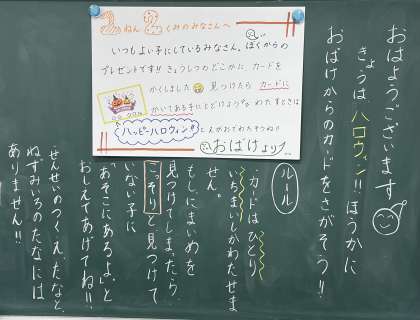 おはようございます
きょうはハロウィン!!ほうかに
おばけからのカードをさがそう!!
2ねん2くみのみなさんへ
いつもよい子にしているみなさん。ぼくからの
プレゼントです!!きょうしつのどこかに カードを
かくしました 見つけたら カードに
かいてある子にとどけよう。わたすときは
ハッピーハロウィン!!
おばけより
ルール
・カードは ひとり
いちまいしかわたせま
せん。
・もし、にまいめを
見つけてしまったら、
こっそりと見つけて
いない子に
「あそこにあるよ」と
おしえてあげてね!!
・せんせいのつくえ、たなと、
ねずみいろのたなには
ありません!!